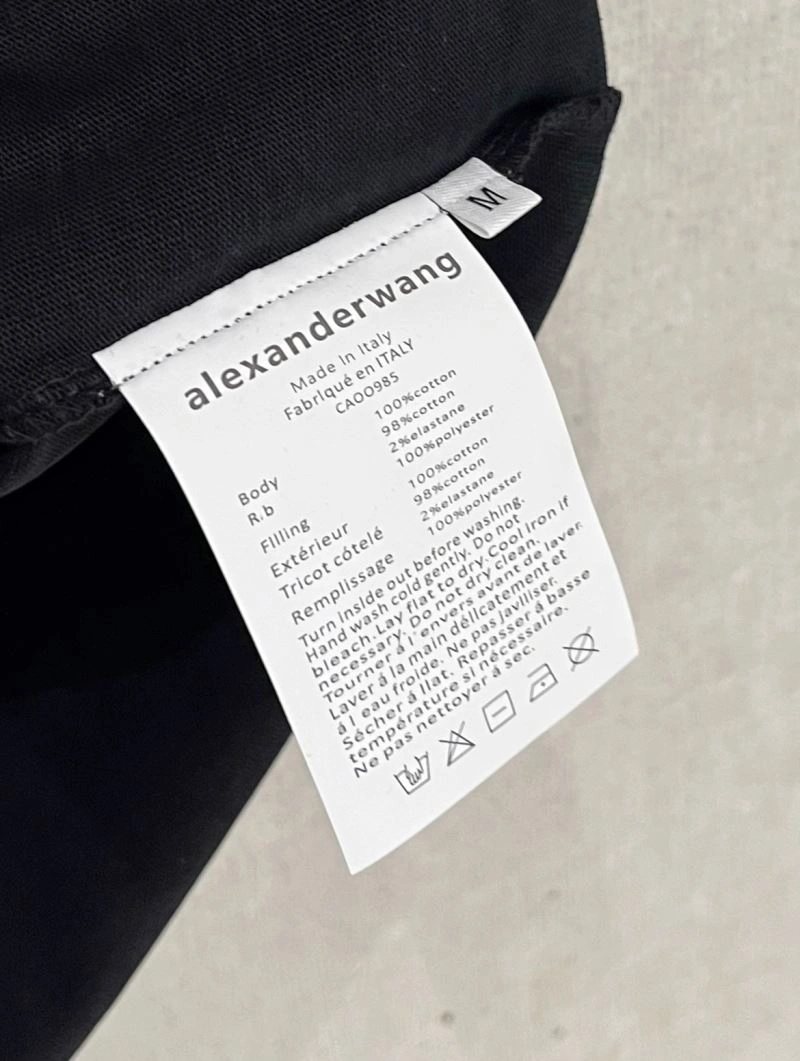 M
alexanderwang
Made In Italy
Fabrlqué en ITALY
CA00985
100%cotton
98%cotton
2%elastane
100%polyester
Body
R.b
FIlling
100%cotton
98%cotton
2%elastane
100%polyester
Extérieur
Tricot côtelé
Remplissage
Turn inside out before washing.
Hand wash cold gently. Do not
bleach. Lay flat to dry. Cool Iron If
necessary. Do not dry clean.
Tourner á l'envers avant de laver.
Laver á la main délicatement et
á l eau froide. Ne pas javiliser.
Sécher á llat. Repasser á basse
température sl nécessaire.
Ne pas nettoyer á sec.